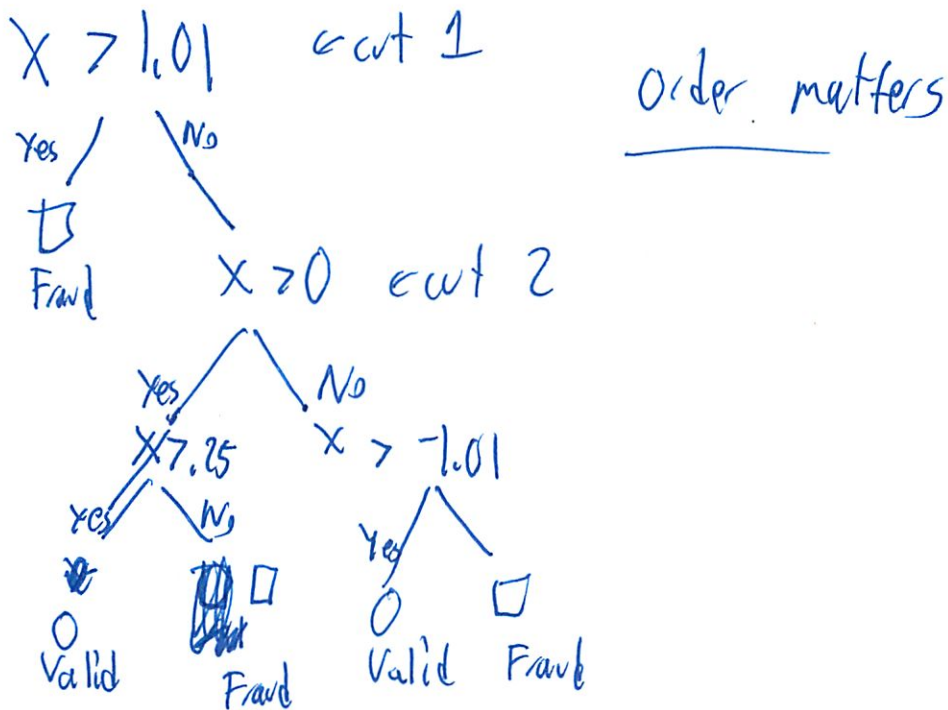 X > 1.01 ← cut 1
Order matters
Yes No
Fraud
X > 0 ← cut 2
Yes No
X > .25 X > -1.01
Yes No Yes
Valid Fraud Valid Fraud